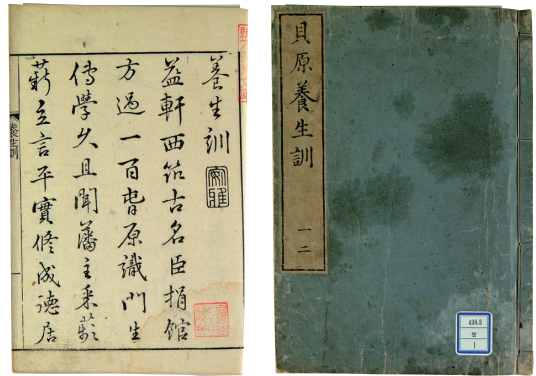 養生訓
益軒西筑古名臣捐館
方過一百原識門生
傳學久且聞藩主采
立言平實修成德居
養生訓
貝原養生訓
一二
498.3
1